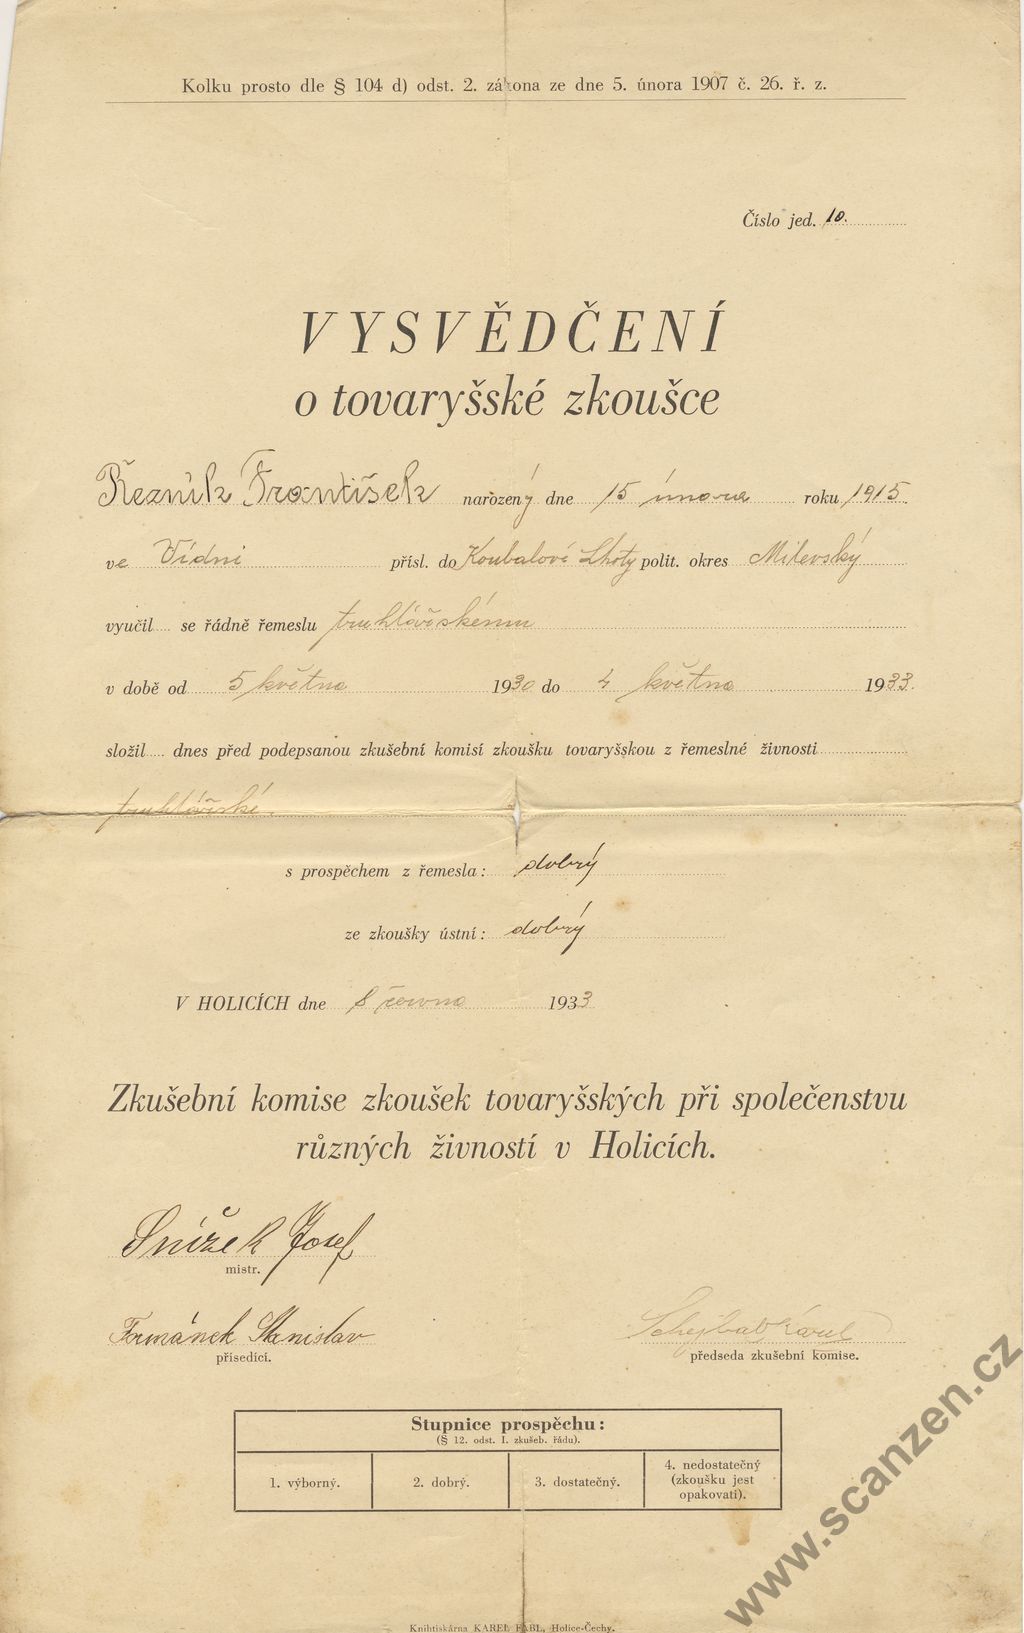 Kolku prosto dle § 104 d) odst. 2. zákona ze dne 5. února 1907 č. 26. ř. z.
Číslo jed. 10.
VYSVĚDČENÍ
o tovaryšské zkoušce
Řezník František narozený dne 15 února roku 1915
ve Vídni přísl. do Koubalově Lhoty polit. okres Milevský
vyučil se řádně řemeslu truhlářskému
v době od 5 května 1930 do 4 května 1933.
složil dnes před podepsanou zkušební komisí zkoušku tovaryšskou z řemeslné živnosti
truhlářské.
s prospěchem z řemesla: dobrý
ze zkoušky ústní: dobrý
V HOLICÍCH dne 8 června 1933
Zkušební komise zkoušek tovaryšských při společenstvu
různých živností v Holicích.
Snížek Josef
mistr.
Formánek Stanislav
přísedící.
Schejbal Karel
předseda zkušební komise.
Stupnice prospěchu:
(§ 12. odst. I. zkušeb. řádu).
1. výborný. 2. dobrý. 3. dostatečný. 4. nedostatečný (zkoušku jest opakovati).
Knihtiskárna KAREL FÁBL, Holice-Čechy.
www.scanzen.cz